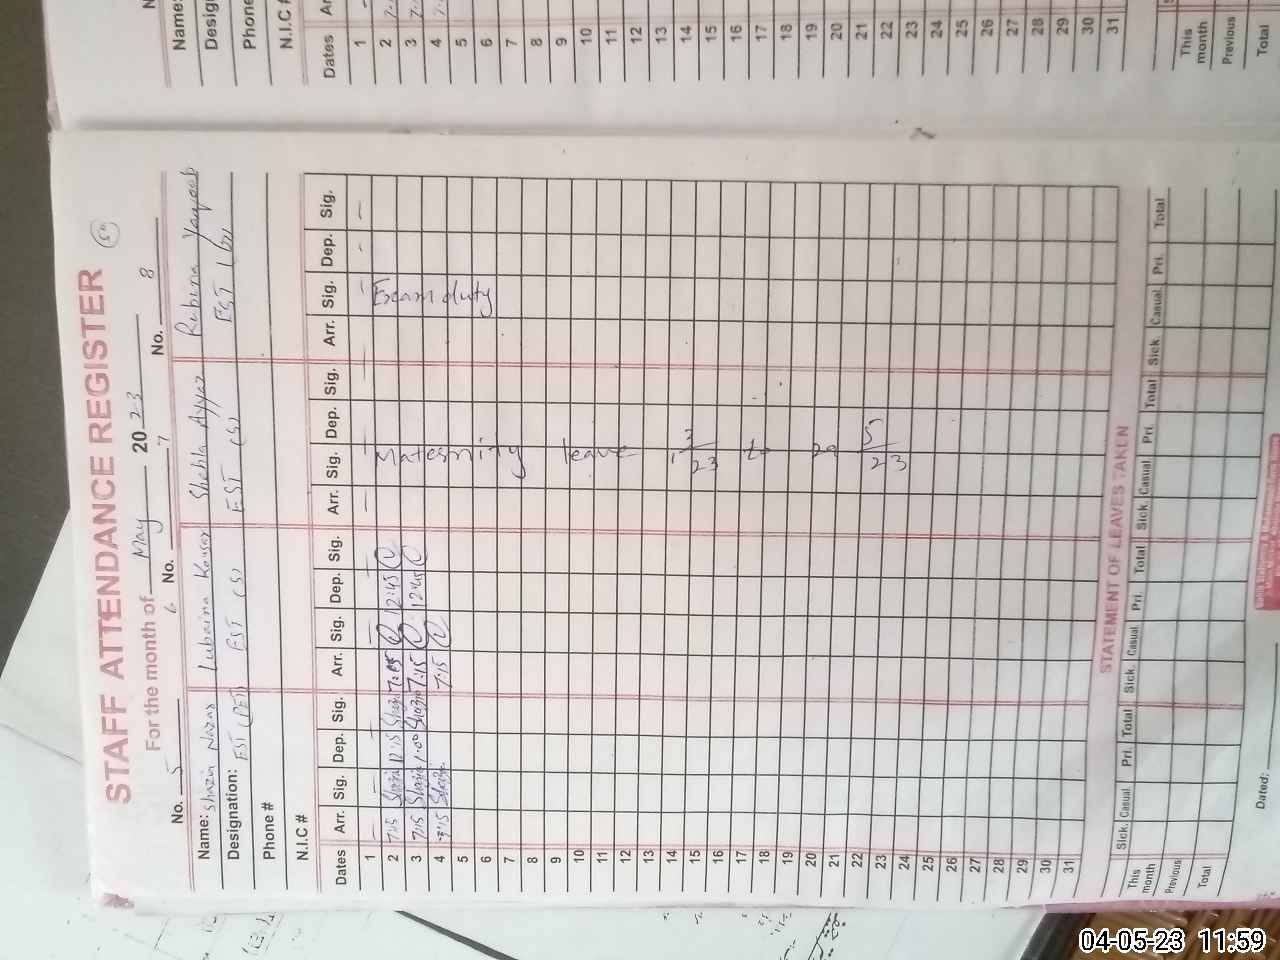 STAFF ATTENDANCE REGISTER
For the month of May 2023
No. 5 No. 6 No. 7 No. 8
Name: Shazia Nazar Lubaina Kousar Shehla Ayyaz Rubina Yaqoob
Designation: EST (PET) EST (S) EST (S) EST
Phone #
N.I.C #
Dates Arr. Sig. Dep. Sig. Arr. Sig. Dep. Sig. Arr. Sig. Dep. Sig. Arr. Sig. Dep. Sig.
1
2 7:15 Shazia 12:15 Shazia 12:45 Exam duty
3 7:15 Shazia 1:00 Shazia 7:15 12:45
4 7:15 Shazia 7:15
Maternity leave 1 3/23 to 29 5/23
5
6
7
8
9
10
11
12
13
14
15
16
17
18
19
20
21
22
23
24
25
26
27
28
29
30
31
STATEMENT OF LEAVES TAKEN
Sick. Casual. Pri. Total Sick. Casual. Pri. Total Sick. Casual. Pri. Total Sick. Casual. Pri. Total
This month
Previous
Total
Dated:
Name:
Phone
N.I.C #
Dates
1
2
3
4
5
6
7
8
9
10
11
12
13
14
15
16
17
18
19
20
21
22
23
24
25
26
27
28
29
30
31
This month
Previous
Total
04-05-23 11:59